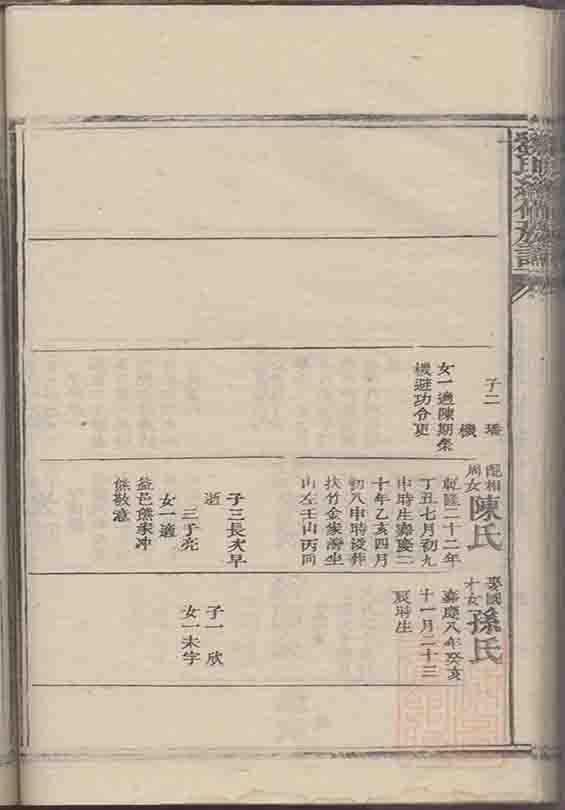 氏續修族譜
子二 璠
機
女一適陳期榮
機避功令更
配相
周女
陳氏
乾隆二十二年
丁丑七月初九
申時生嘉慶二
十年乙亥四月
初八申時歿葬
扶竹金家灣坐
山左壬山丙向
子三長次早
逝
三子亮
女一適
益邑熊家冲
熊敬意
娶國
才女
孫氏
嘉慶八年癸亥
十一月二十三
辰時生
子一欣
女一未字